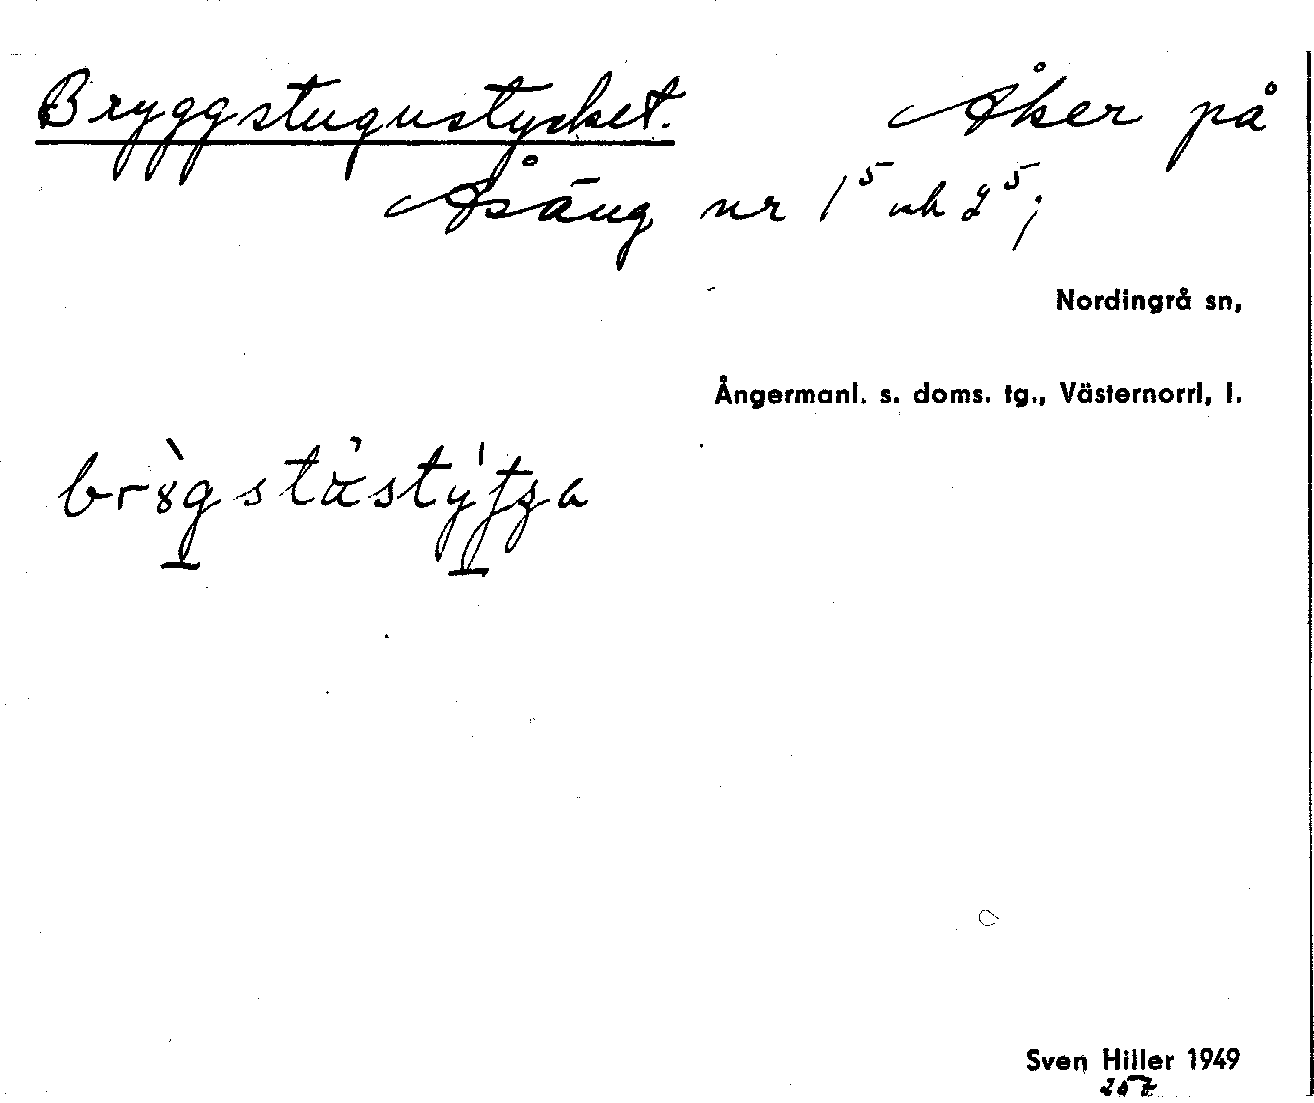 Bryggstugustycket. Åker på
Åsäng nr 1⁵ och 2⁵;
Nordingrå sn,
Ångermanl. s. doms. tg., Västernorrl, l.
Sven Hiller 1949